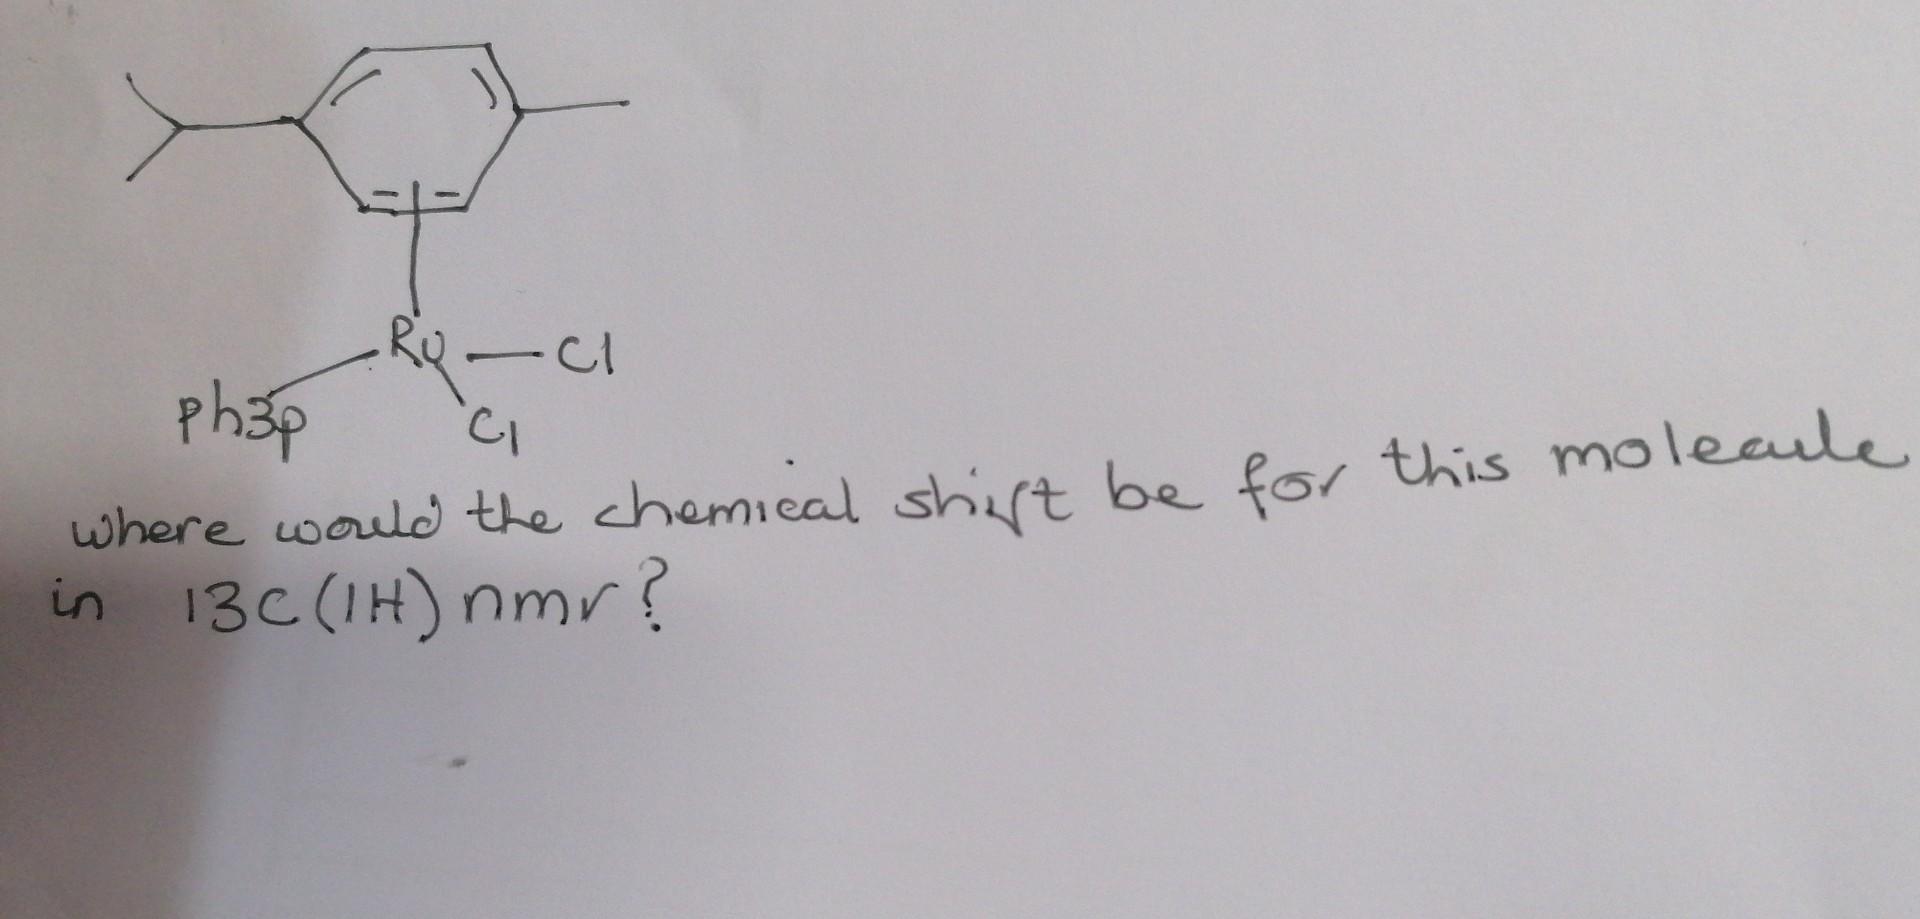 Ru Cl
Ph3p Cl
where would the chemical shift be for this molecule
in 13C(1H) nmr?